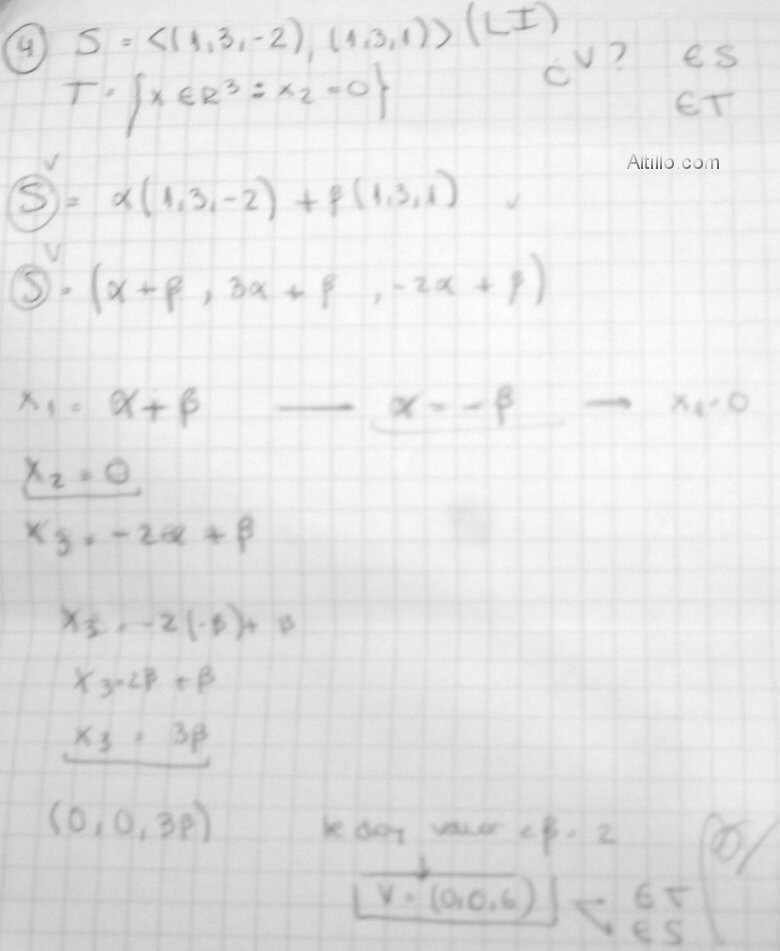 ④ S = <(1,3,-2), (1,3,1)> (LI)
¿V? ∈ S
T = {x ∈ R³ : x₂ = 0}
∈ T
Altillo.com
Ⓢ = α(1,3,-2) + β(1,3,1)
Ⓢ = (α + β, 3α + β, -2α + β)
x₁ = α + β — α = -β → x₁ = 0
x₂ = 0
x₃ = -2α + β
x₃ = -2(-β) + β
x₃ = 2β + β
x₃ = 3β
(0, 0, 3β) le doy valor a β = 2
V = (0,0,6) ∈ T
∈ S